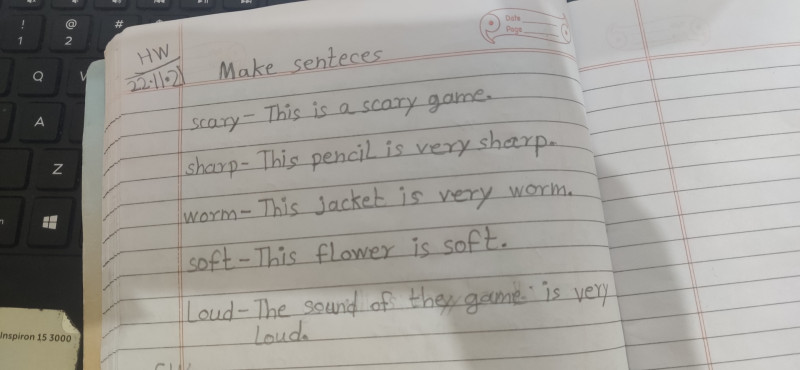 !
1
@
2
#
Q
A
Z
Inspiron 15 3000
Date
Page
HW
22.11.21
Make senteces
scary- This is a scary game.
sharp- This pencil is very sharp.
worm- This Jacket is very worm.
soft- This flower is soft.
Loud- The sound of the game is very
Loud.